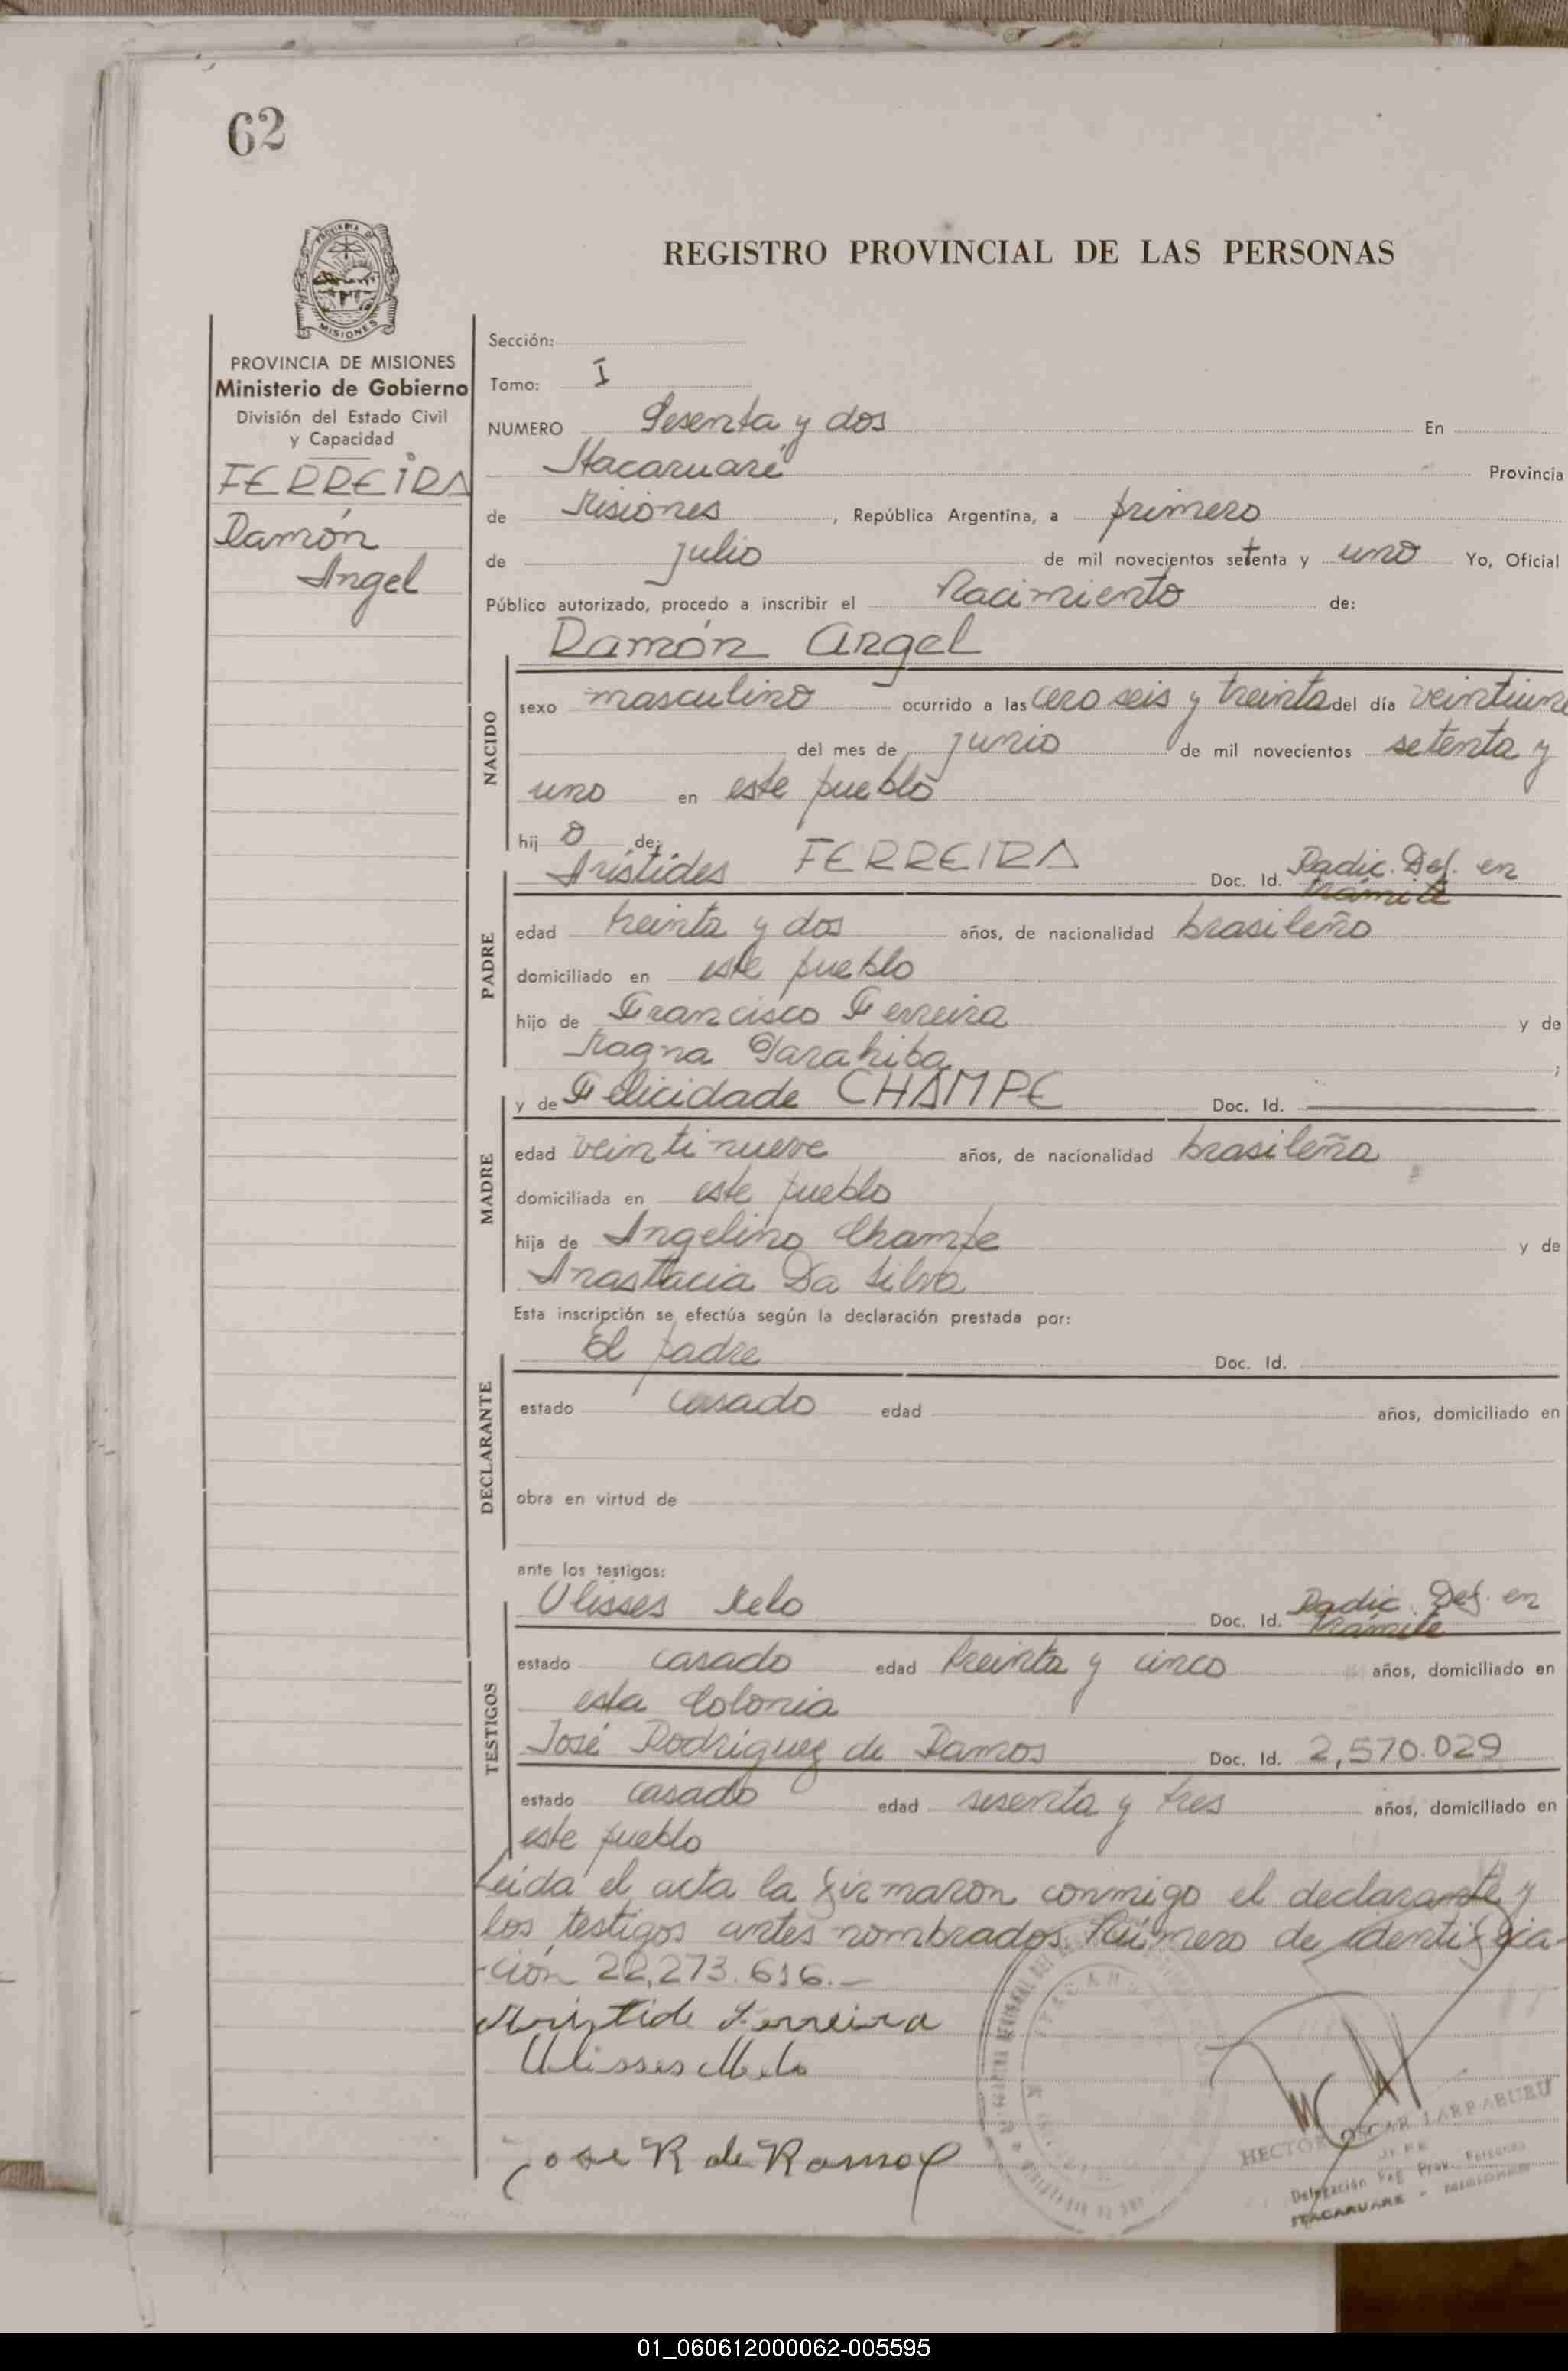 62
REGISTRO PROVINCIAL DE LAS PERSONAS
PROVINCIA DE
MISIONES
PROVINCIA DE MISIONES
Ministerio de Gobierno
División del Estado Civil
y Capacidad
FERREIRA
Ramón
Angel
Sección:
Tomo: I
NUMERO Sesenta y dos En
Itacaruaré Provincia
de Misiones, República Argentina, a primero
de julio de mil novecientos setenta y uno Yo, Oficial
Público autorizado, procedo a inscribir el Nacimiento de:
Ramón Angel
NACIDO
sexo masculino ocurrido a las cero seis y treinta del día veintiuno
del mes de junio de mil novecientos setenta y
uno en este pueblo
hij o de:
Arístides FERREIRA Doc. Id. Radic. Def. en
trámite
PADRE
edad treinta y dos años, de nacionalidad brasileño
domiciliado en este pueblo
hijo de Francisco Ferreira y de
Magna ;
y de Felicidade CHAMPE Doc. Id.
MADRE
edad veintinueve años, de nacionalidad brasileña
domiciliada en este pueblo
hija de Angelino Champe y de
Anastacia Da Silva
Esta inscripción se efectúa según la declaración prestada por:
El padre Doc. Id.
DECLARANTE
estado casado edad años, domiciliado en
obra en virtud de
ante los testigos:
Ulisses Melo Doc. Id. Radic. Def. en
trámite
TESTIGOS
estado casado edad treinta y cinco años, domiciliado en
esta Colonia
José Rodriguez de Ramos Doc. Id. 2,570.029
estado casado edad sesenta y tres años, domiciliado en
este pueblo
Leída el acta la firmaron conmigo el declarante y
los testigos antes nombrados. Número de identifica-
ción 22,273.616.-
Aristide Ferreira
Ulisses Melo
Jose R de Ramos
HECTOR OSCAR LARRABURU
JEFE
Delegación Reg. Prov. Personas
ITACARUARE - MISIONES
01_060612000062-005595